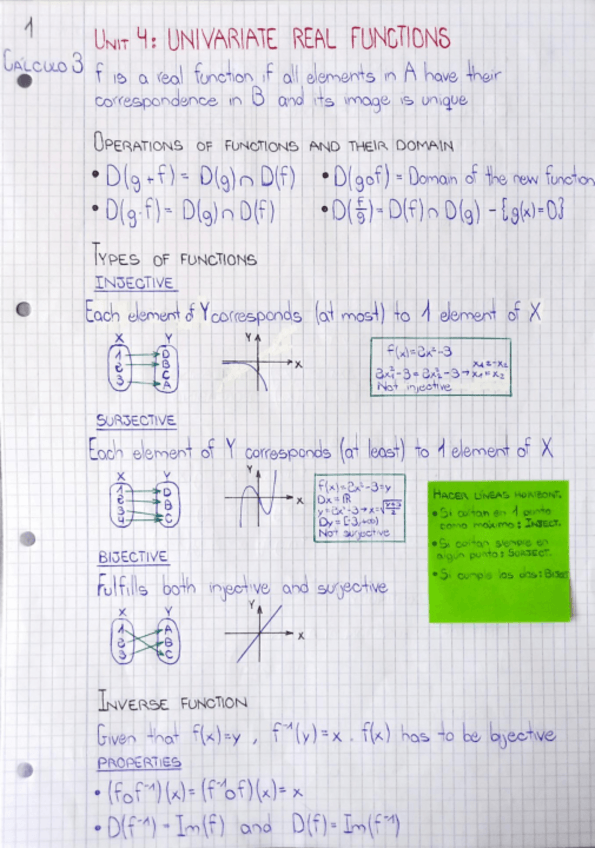 1
CALCULO 3
UNIT 4: UNIVARIATE REAL FUNCTIONS
f is a real function if all elements in A have their
correspondence in B and its image is unique
OPERATIONS OF FUNCTIONS AND THEIR DOMAIN
• D(g+f) = D(g)∩D(f) • D(gof) = Domain of the new function
• D(g·f) = D(g)∩D(f) • D(f/g) = D(f)∩D(g) - {g(x)=0}
TYPES OF FUNCTIONS
INJECTIVE
Each element of Y corresponds (at most) to 1 element of X
X Y
1 D
2 B
3 C
A
Y
X
f(x)=2x²-3
2x₁²-3=2x₂²-3→x₁=x₂
x₁=-x₂
Not injective
SURJECTIVE
Each element of Y corresponds (at least) to 1 element of X
X Y
1 D
2 B
3 C
4
Y
X
f(x)=2x²-3=y
Dx=ℝ
y=2x²-3→x=√(y+3)/2
Dy=[-3,+∞)
Not surjective
HACER LÍNEAS HORIZONT.
• Si cortan en 1 punto
como máximo: INJECT.
• Si cortan siempre en
algún punto: SURJECT.
• Si cumple las dos: BIJECT
BIJECTIVE
Fulfills both injective and surjective
X Y
1 A
2 B
3 C
Y
X
INVERSE FUNCTION
Given that f(x)=y, f⁻¹(y)=x. f(x) has to be bjective
PROPERTIES
• (fof⁻¹)(x)=(f⁻¹of)(x)=x
• D(f⁻¹)=Im(f) and D(f)=Im(f⁻¹)